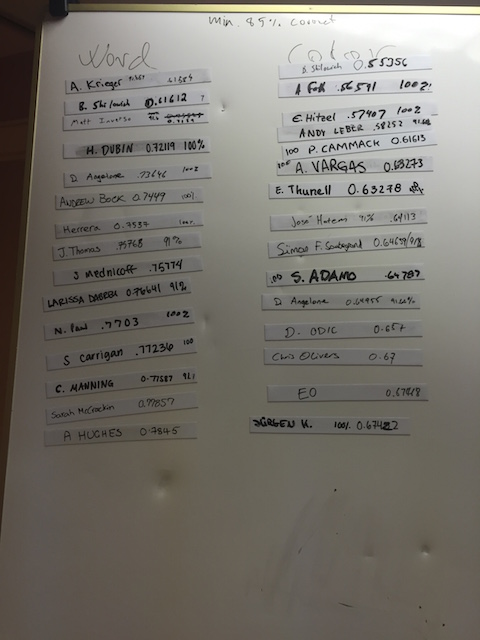 min. 85% correct
Word
A. Krieger .61584
B. Shilowich 0.61612
Matt Inverso
H. DUBIN 0.72119 100%
D. Angelone .73646 100%
ANDREW BOCK 0.7449 100%
Herrera 0.7537
J. Thomas .75768 91%
J Mednicoff .75774
LARISSA 0.76641 91%
N. law .7703 100%
S Carrigan .77236 100
C. MANNING 0.77587
Sarah McCrackin 0.77857
A HUGHES 0.7845
Color
B. Shilowich 0.55356
A Fox .56591 100%
E. Hitzel .57407 100%
ANDY LEBER .58252
100 P. CAMMACK 0.61613
100 A. VARGAS 0.63273
E. Thunell 0.63278
José Hatem 91% .64113
Simon F.
100 S. ADAMO .64787
D Angelone
D. ODIC 0.657
Chris Olivers 0.67
EO
JÜRGEN K. 100% 0.67422